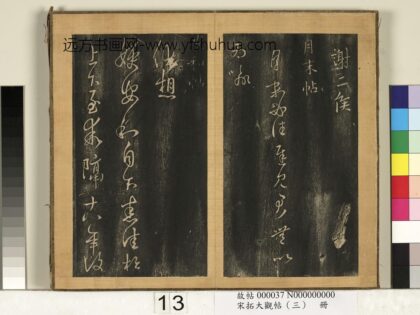 远方书画网-www.yfshuhua.com
謝二侯
月末帖
月末必往遲見君無以
為喻
想
嫂安和自下悉佳松
上下至乖隔十八年復
13
故帖 000037 N00000000
宋拓大觀帖（三） 冊